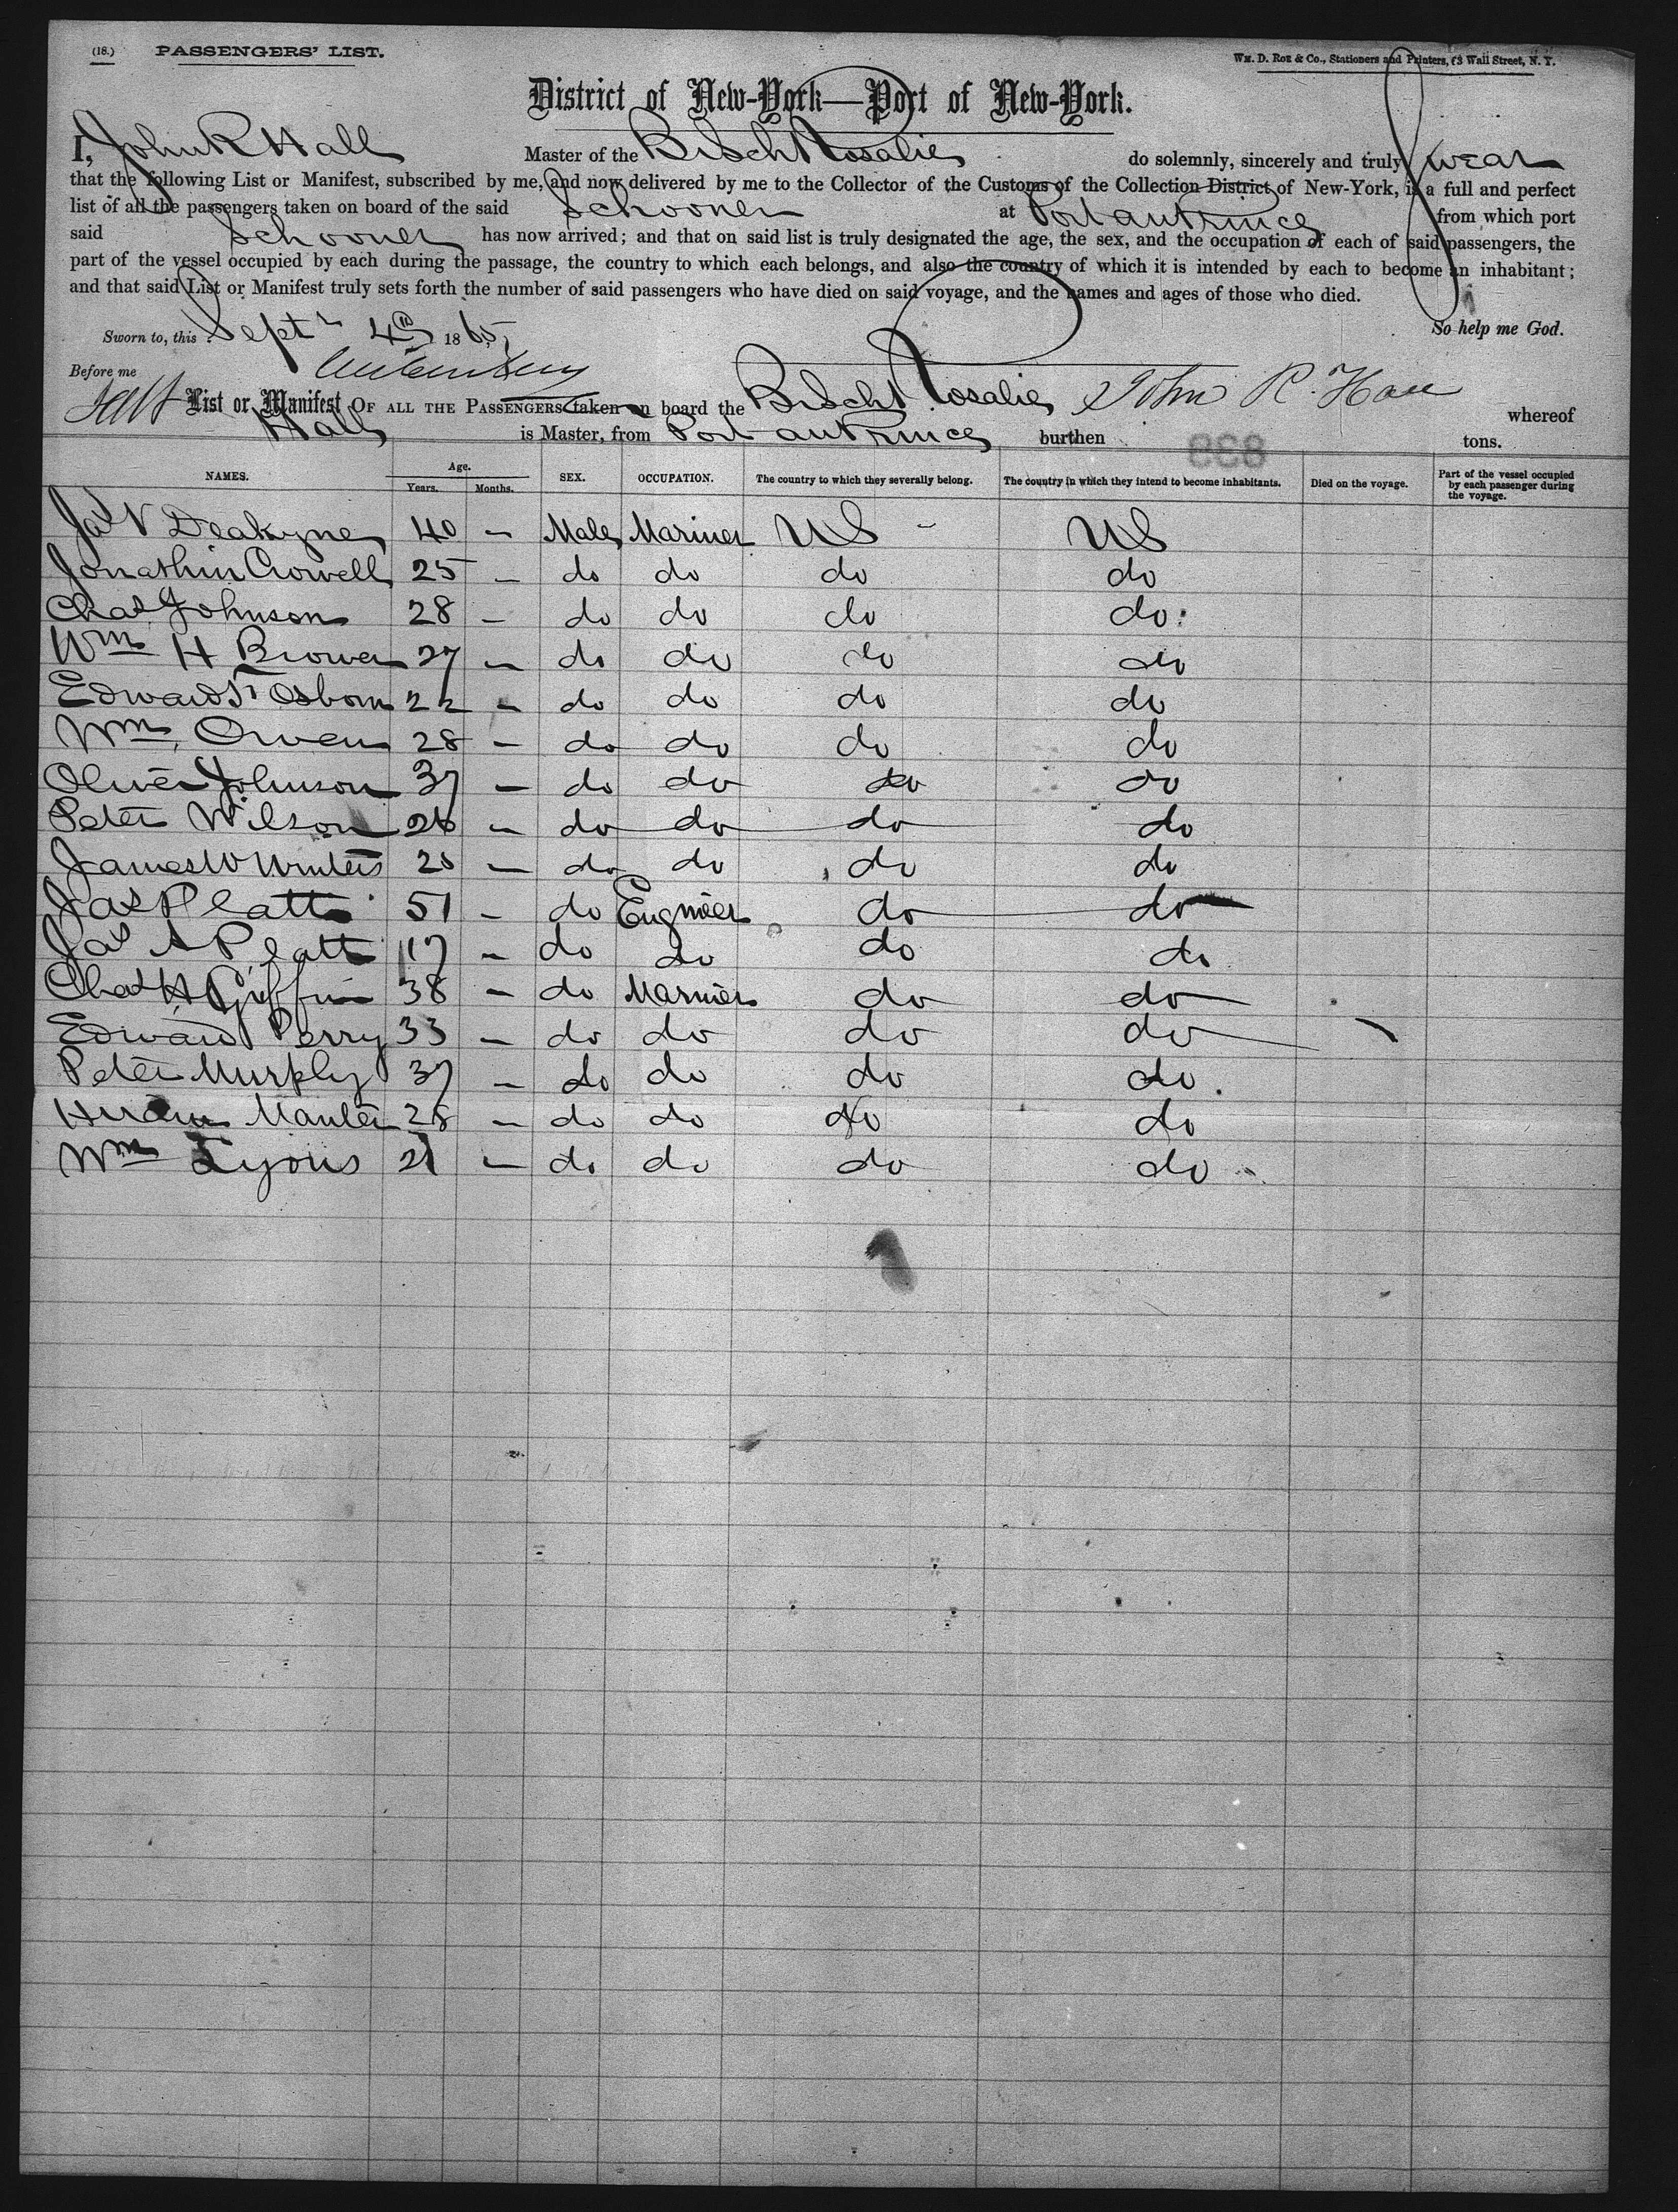 (18.) PASSENGERS' LIST. Wm. D. Roe & Co., Stationers and Printers, 63 Wall Street, N. Y.
District of New-York—Port of New-York.
I, John R Hall Master of the Br Sch Rosalie do solemnly, sincerely and truly swear
that the following List or Manifest, subscribed by me, and now delivered by me to the Collector of the Customs of the Collection District of New-York, is a full and perfect
list of all the passengers taken on board of the said Schooner at Port au Prince from which port
said Schooner has now arrived; and that on said list is truly designated the age, the sex, and the occupation of each of said passengers, the
part of the vessel occupied by each during the passage, the country to which each belongs, and also the country of which it is intended by each to become an inhabitant;
and that said List or Manifest truly sets forth the number of said passengers who have died on said voyage, and the names and ages of those who died.
Sworn to, this Sept 4th 1865, So help me God.
Before me
List or Manifest OF ALL THE PASSENGERS taken on board the Br Sch Rosalie John R. Hall whereof
Hall is Master, from Port au Prince burthen 868 tons.
NAMES. Age. Years. Months. SEX. OCCUPATION. The country to which they severally belong. The country in which they intend to become inhabitants. Died on the voyage. Part of the vessel occupied by each passenger during the voyage.
Jas V Deakyne 40 - Male Mariner US - US
Jonathin Crowell 25 - do do do do
Chas Johnson 28 - do do do do
Wm H Brower 27 - do do do do
Edward T Osborn 22 - do do do do
Wm Owen 28 - do do do do
Oliver Johnson 37 - do do do do
Peter Wilson 26 - do do do do
James W 20 - do do do do
Jas Platt 51 - do Engineer do do
Jas A Platt 17 - do do do do
Chas H Griffin 38 - do Mariner do do
Edward Perry 33 - do do do do
Peter Murphy 37 - do do do do
Hiram Manter 28 - do do do do
Wm Lyons 21 - do do do do